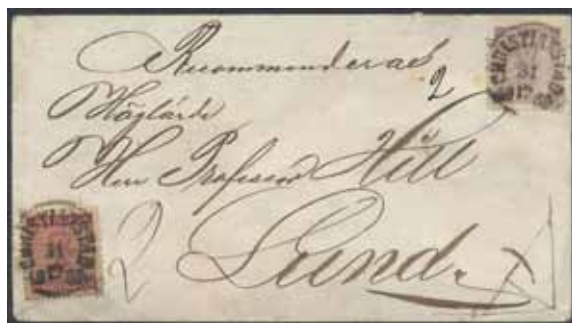 Recommenderas
2
Höglärde
Herr Professor Hill
Lund.
2
CHRISTIANSTAD
31
12
CHRISTIANSTAD
31
12